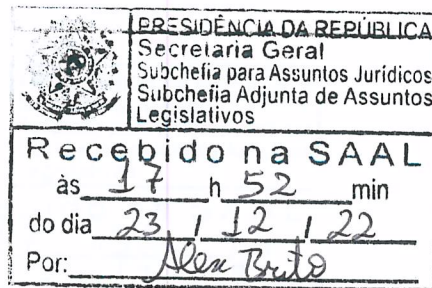 PRESIDÊNCIA DA REPÚBLICA
Secretaria Geral
Subchefia para Assuntos Jurídicos
Subchefia Adjunta de Assuntos
Legislativos
Recebido na SAAL
às 17 h 52 min
do dia 23 / 12 / 22
Por: Alex Brito